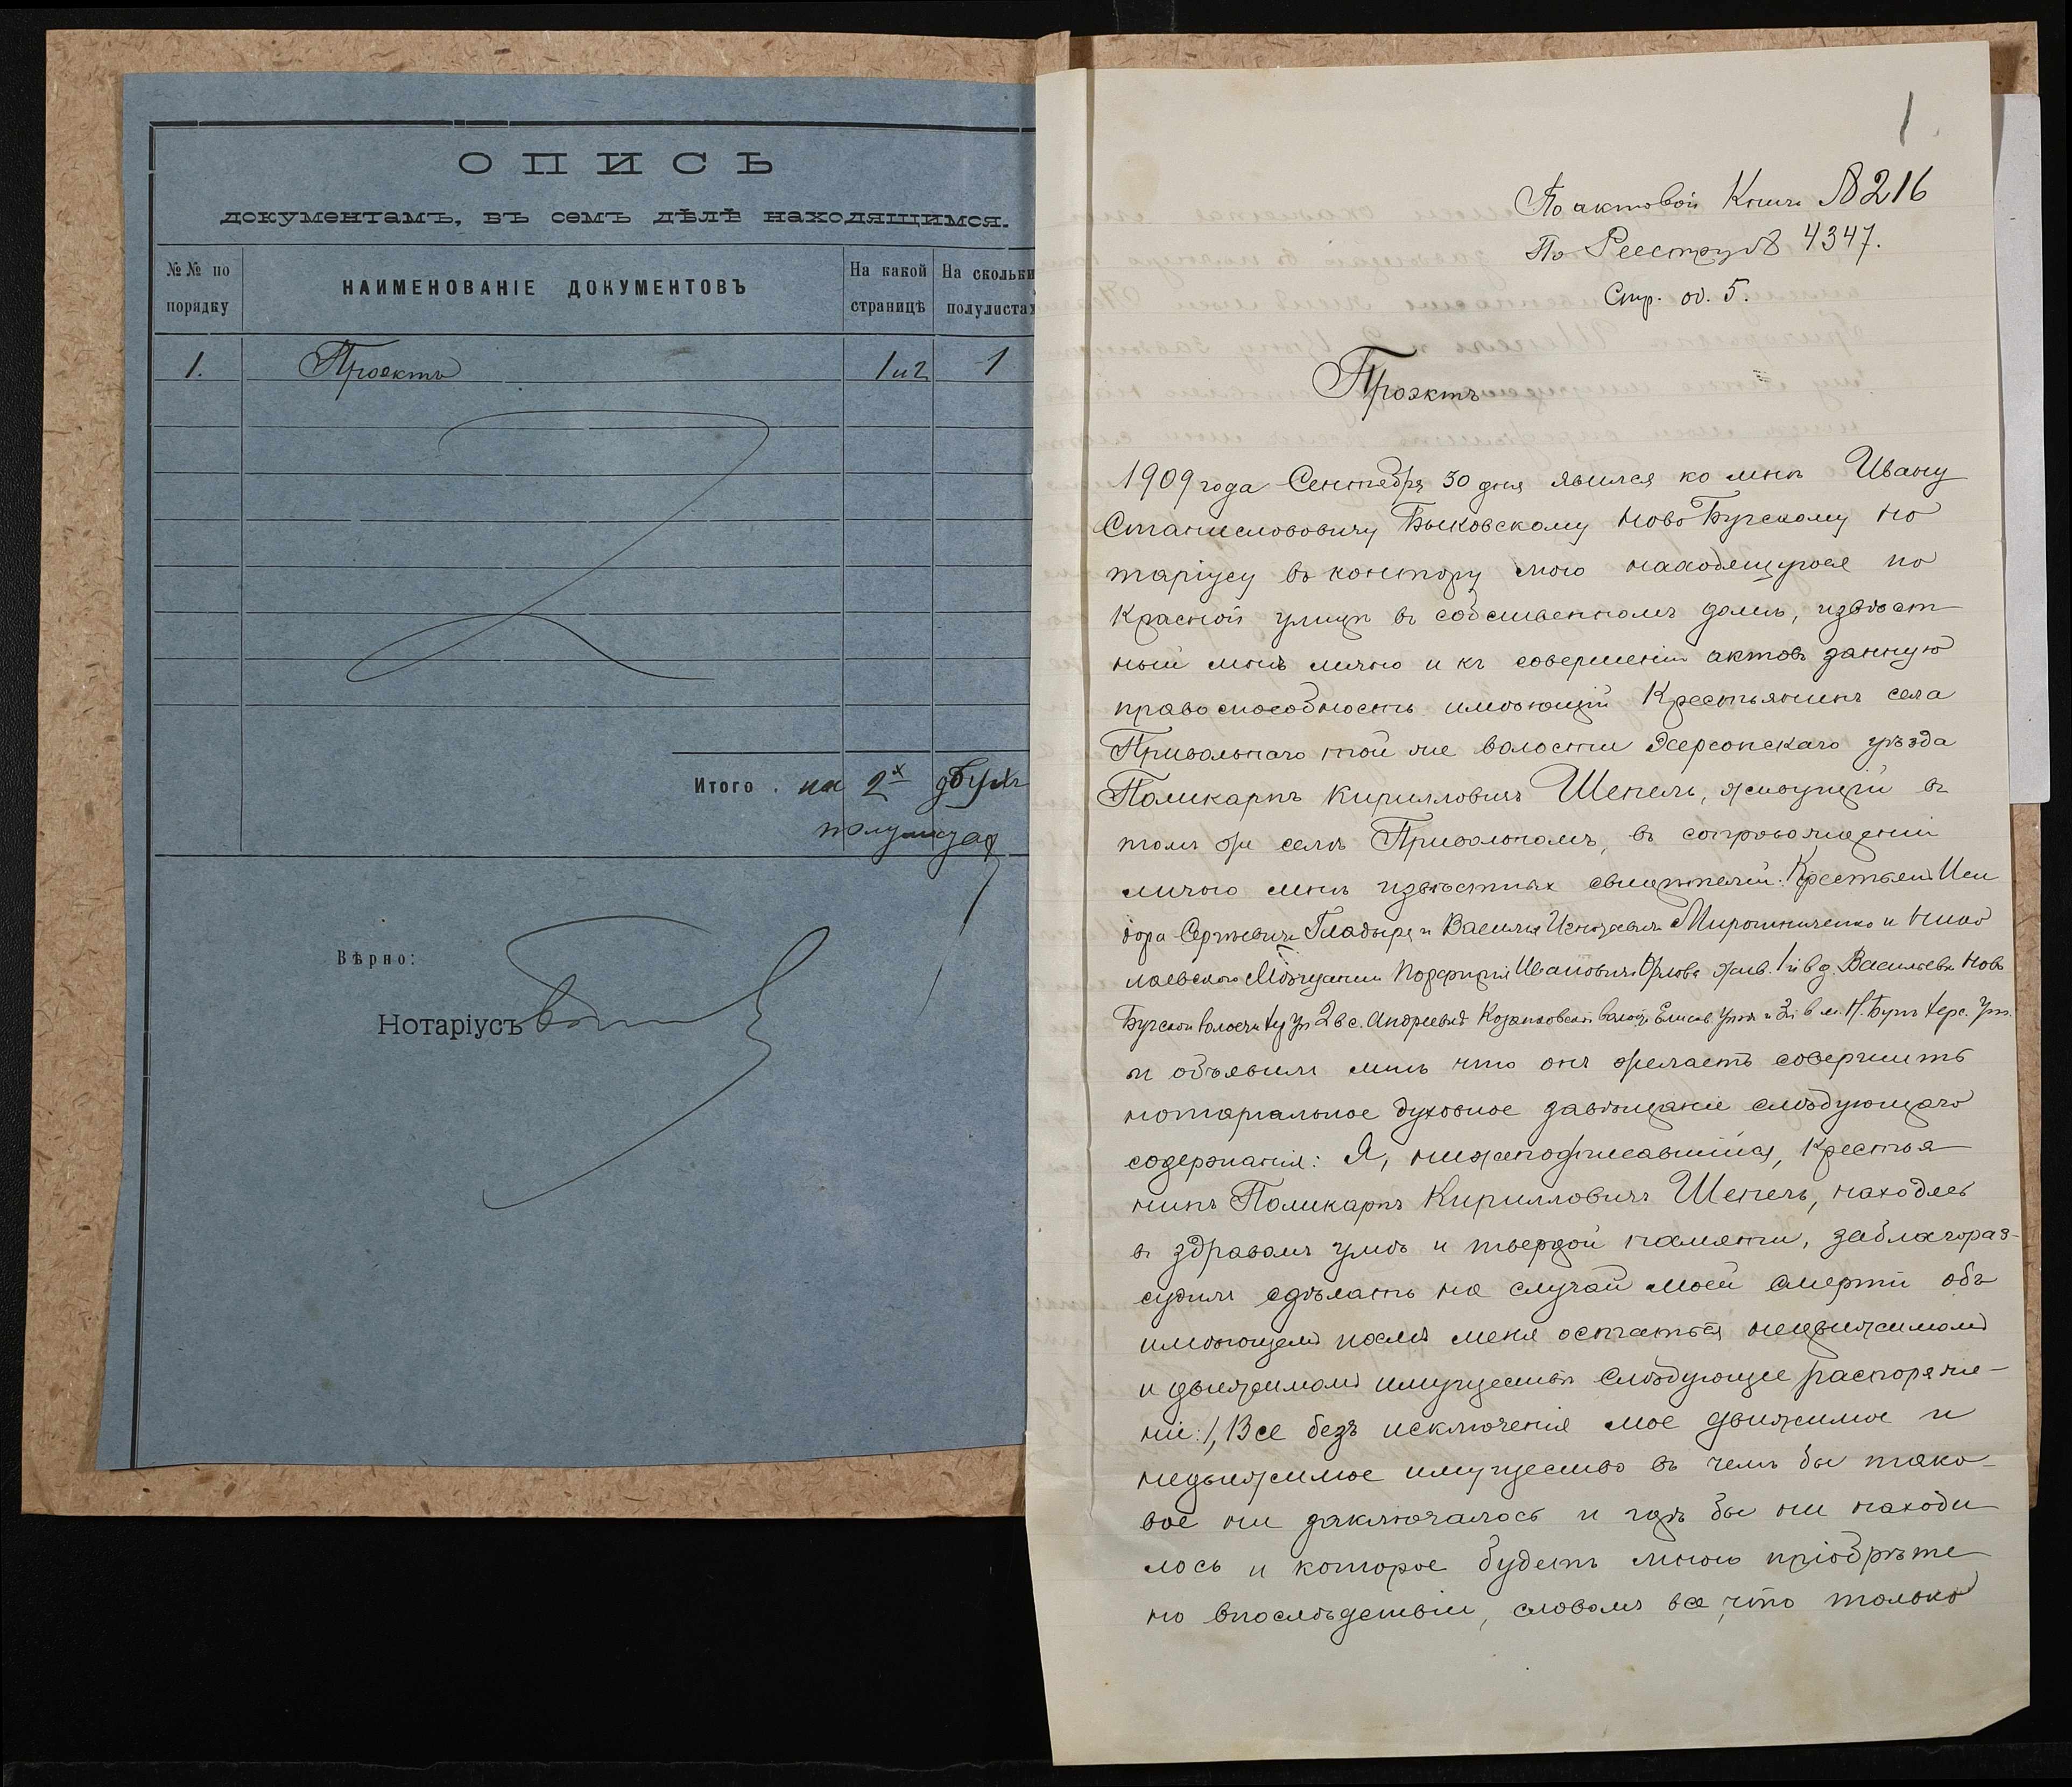 ОПИСЬ
документамъ, въ семъ дѣлѣ находящимся.
№№ по порядку
НАИМЕНОВАНІЕ ДОКУМЕНТОВЪ
На какой страницѣ
На скольки полулистах
1. Проектъ 1 и 2 1
Итого . на 2х двухъ
полулистах
Вѣрно:
Нотаріусъ
1
По актовой Книгѣ №216
По Реестру № 4347.
Стр. об. 5.
Проэктъ
1909 года Сентября 30 дня явился ко мнѣ Ивану
Станиславовичу Быковскому Ново Бугскому но
таріусу въ контору мою находящуюся по
Красной улицѣ въ собственномъ домѣ, извѣст
ный мнѣ лично и къ совершенію актовъ данную
правоспособность имѣющій Крестьянинъ села
Привольнаго той же волости Херсонскаго уѣзда
Поликарпъ Кирилловичъ Шепель, живущій въ
томъ же селѣ Привольномъ, въ сопровожденіи
лично мнѣ извѣстныхъ свидѣтелей: Крестьянъ Иси
дора Сергѣевича Гладыря и Василія Игнатьевича Мирошниченко и Нико
лаевского Мѣщанина Порфирія Ивановича Орлова жив. 1й в д. Васильевкѣ Ново
Бугской волости Хер у. 2 в с. Андреевкѣ Казанковской волос. Елисав. уѣзда и 3й в м. Н. Бугѣ Херс. уѣз.
и объявилъ мнѣ что онъ желаетъ совершить
нотаріальное духовное завѣщаніе слѣдующаго
содержанія: Я, нижеподписавшійся, Крестья
нинъ Поликарпъ Кирилловичъ Шепель, находясь
въ здравомъ умѣ и твердой памяти, заблагораз-
судилъ сдѣлать на случай моей смерти объ
имѣющемъ послѣ меня остаться недвижимомъ
и движимомъ имуществѣ слѣдующее распоряже-
ніе: 1, Все безъ исключенія мое движимое и
недвижимое имущество въ чемъ бы тако-
вое ни заключалось и гдѣ бы ни находи
лось и которое будетъ мною пріобрѣте
но впослѣдствіи, словомъ все, что только